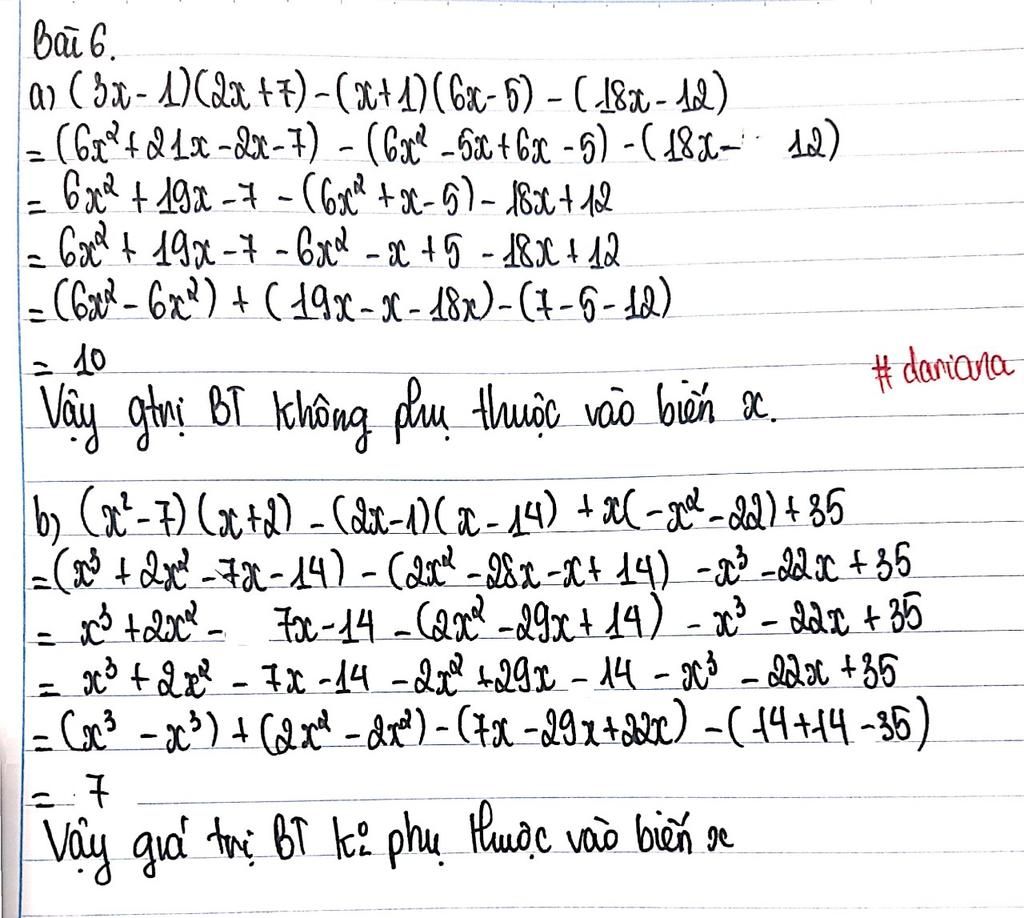 Bài 6.
a) (3x - 1)(2x + 7) - (x + 1)(6x - 5) - (18x - 12)
= (6x² + 21x - 2x - 7) - (6x² - 5x + 6x - 5) - (18x - 12)
= 6x² + 19x - 7 - (6x² + x - 5) - 18x + 12
= 6x² + 19x - 7 - 6x² - x + 5 - 18x + 12
= (6x² - 6x²) + (19x - x - 18x) - (7 - 5 - 12)
= 10
# daniana
Vậy gtrị BT không phụ thuộc vào biến x.
b) (x² - 7)(x + 2) - (2x - 1)(x - 14) + x(-x² - 22) + 35
= (x³ + 2x² - 7x - 14) - (2x² - 28x - x + 14) - x³ - 22x + 35
= x³ + 2x² - 7x - 14 - (2x² - 29x + 14) - x³ - 22x + 35
= x³ + 2x² - 7x - 14 - 2x² + 29x - 14 - x³ - 22x + 35
= (x³ - x³) + (2x² - 2x²) - (7x - 29x + 22x) - (14 + 14 - 35)
= 7
Vậy giá trị BT k° phụ thuộc vào biến x